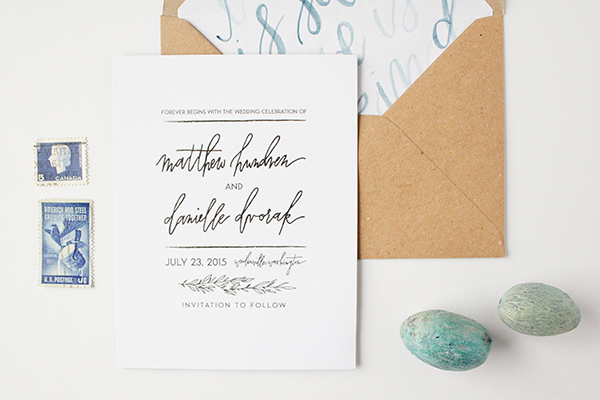 FOREVER BEGINS WITH THE WEDDING CELEBRATION OF
matthew hundren
AND
danielle dvorak
JULY 23, 2015 woodinville, washington
INVITATION TO FOLLOW
5
CANADA
AMERICA AND STEEL
GROWING TOGETHER
U.S. POSTAGE 3¢